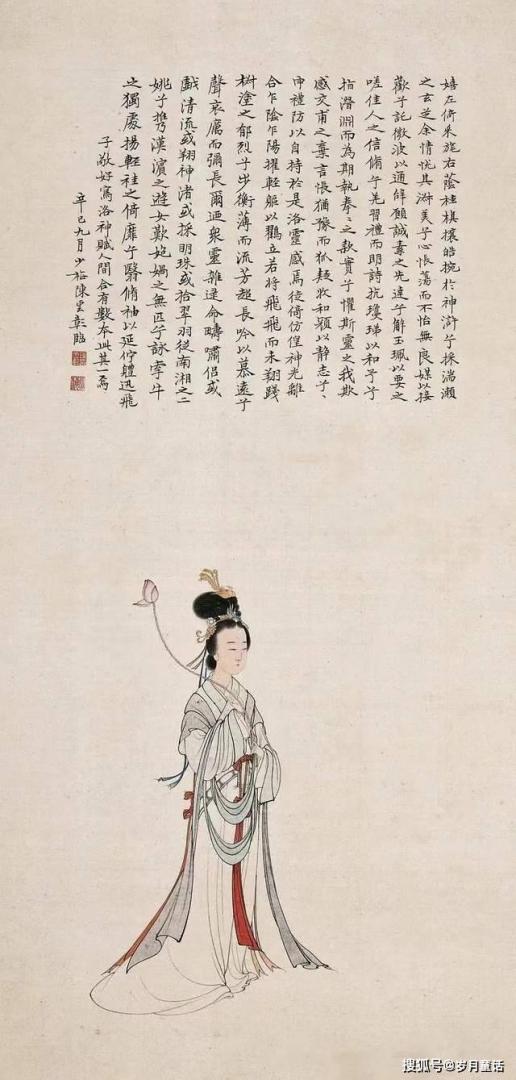 嬉左倚采旄右蔭桂棋攘皓捥於神滸兮採湍瀨
之玄芝余情悦其淑美兮心悵蕩而不怡無良媒以接
歡兮託微波以通辭願誠素之先達兮解玉珮以要之
嗟佳人之信脩兮羌習禮而明詩抗瓊珶以和予兮
指潛淵而為期執拳〻之款實兮懼斯靈之我欺
感交甫之棄言悵猶豫而狐疑收和顏以静志兮、
申禮防以自持於是洛靈感焉徙倚仿偟神光離
合乍陰乍陽擢輕軀以鸖立若将飛飛而未翔踐
椒塗之郁烈兮步衡薄而流芳超長吟以慕遠兮
聲哀厲而彌長爾迺衆靈雜遝命疇嘯侶或
戲清流或翔神渚或採明珠或拾翠羽從南湘之二
姚兮携漢濱之遊女歎匏媧之無匹兮詠牽牛
之獨處揚輕袿之倚靡兮翳脩袖以延佇軆迅飛
子敬好寫洛神賦人間合有數本此其一焉
辛巳九月少梅陳雲彰臨
搜狐号@岁月童话